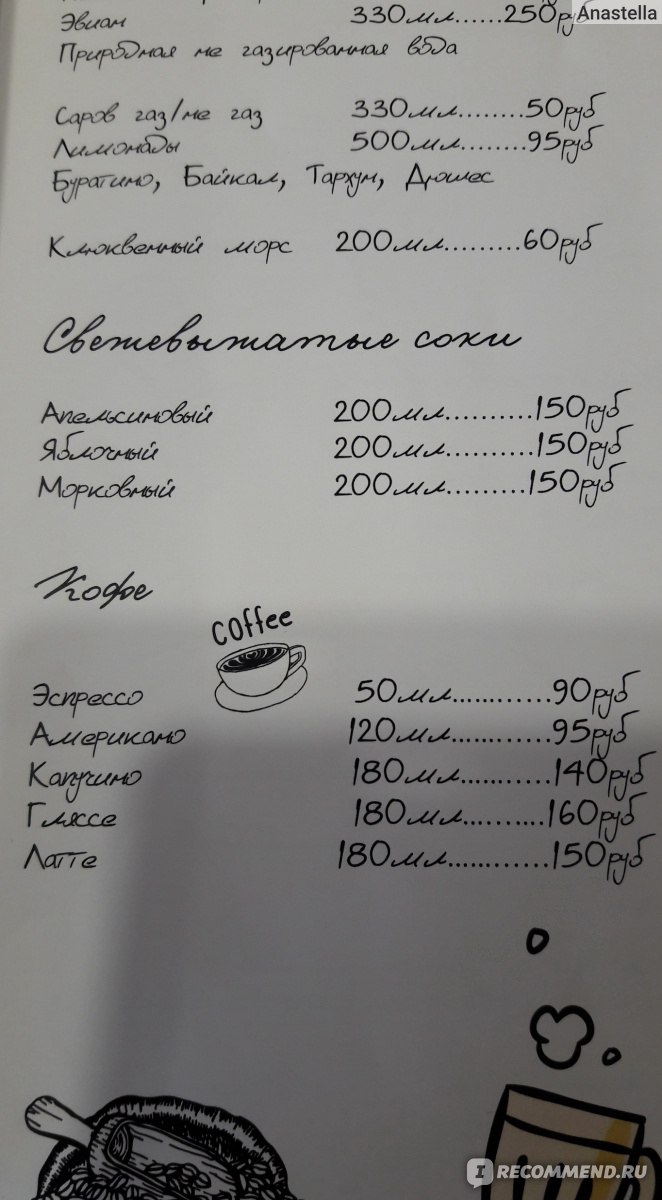 Anastella
Эвиан 330мл......250ру
Природная не газированная вода
Саров газ/не газ 330мл........50руб
Лимонады 500мл........95руб
Буратино, Байкал, Тархун, Дюшес
Клюквенный морс 200мл.........60руб
Свежевыжатые соки
Апельсиновый 200мл..........150руб
Яблочный 200мл..........150руб
Морковный 200мл.........150руб
Кофе
coffee
Эспрессо 50мл............90руб
Американо 120мл............95руб
Капучино 180мл...........140руб
Гляссе 180мл..........160руб
Латте 180мл............150руб
IRECOMMEND.RU